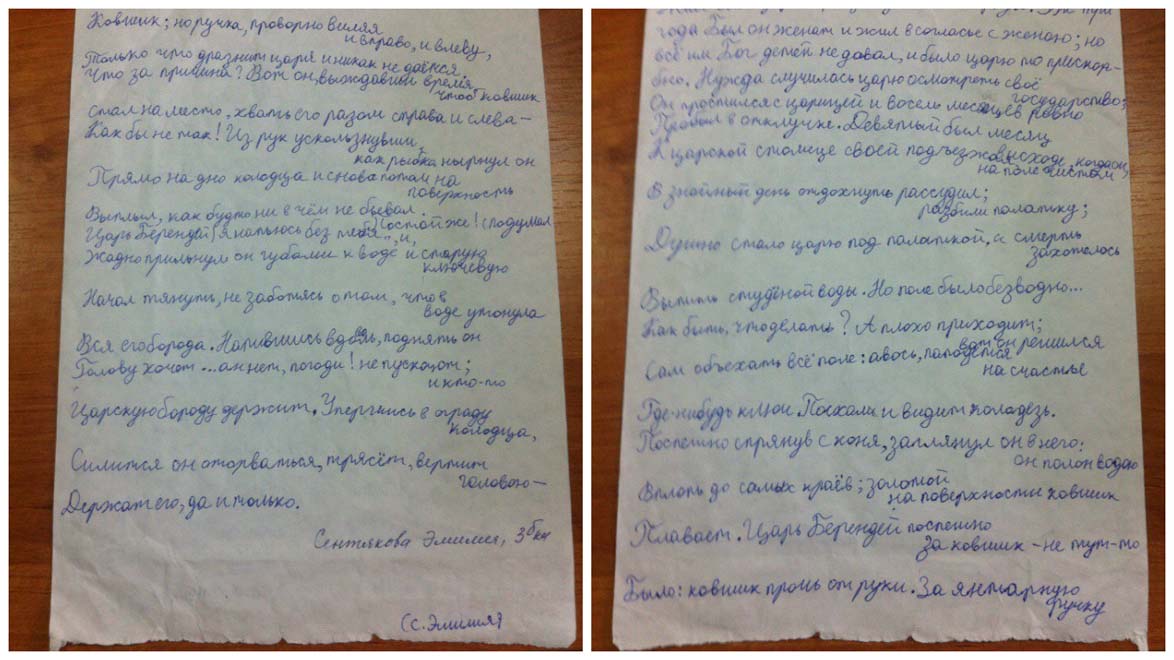 Ковшик; но ручка, проворно виляя
и вправо, и влеву,
Только что дразнит царя и никак не даётся.
Что за причина? Вот он, выждавши время,
чтоб ковшик
Стал на место, хвать его разом справа и слева –
Как бы не так! Из рук ускользнувши,
как рыбка нырнул он
Прямо на дно колодца и снова потом на
поверхность
Выплыл, как будто ни в чём не бывал.
(постой же! (подумал
Царь Берендей) я напьюсь без тебя", и,
Жадно прильнул он губами к воде и струю
ключевую
Начал тянуть, не заботясь о том, что в
воде утонула
Вся его борода. Напившись вдоволь, поднять он
Голову хочет... ан нет, погоди! не пускают;
и кто-то
Царскую бороду держит. Упершись в ограду
колодца,
Силится он оторваться, трясёт, вертит
головою –
Держат его, да и только.
Сентякова Эмилия, 3б кл
(С. Эмилия)
года Был он женат и жил в согласье с женою; но
всё им Бог детей не давал, и было царю то прискор-
бно. Нужда случилась царю осмотреть своё
государство;
Он простился с царицей и восемь месяцев ровно
Пробыл в отлучке. Девятый был месяц
в исходе, когда он,
К царской столице своей подъезжая,
на поле чистом
В знойный день отдохнуть рассудил;
разбили палатку;
Душно стало царю под палаткой, и смерть
захотелось
Выпить студёной воды. Но поле было безводно...
Как быть, что делать? А плохо приходит;
вот он решился
Сам объехать всё поле: авось, попадётся
на счастье
Где-нибудь ключ. Поехал и видит колодезь.
Поспешно спрянув с коня, заглянул он в него:
он полон водою
Вплоть до самых краёв; золотой
на поверхности ковшик
Плавает. Царь Берендей поспешно
за ковшик – не тут-то
Было: ковшик прочь от руки. За янтарную
ручку